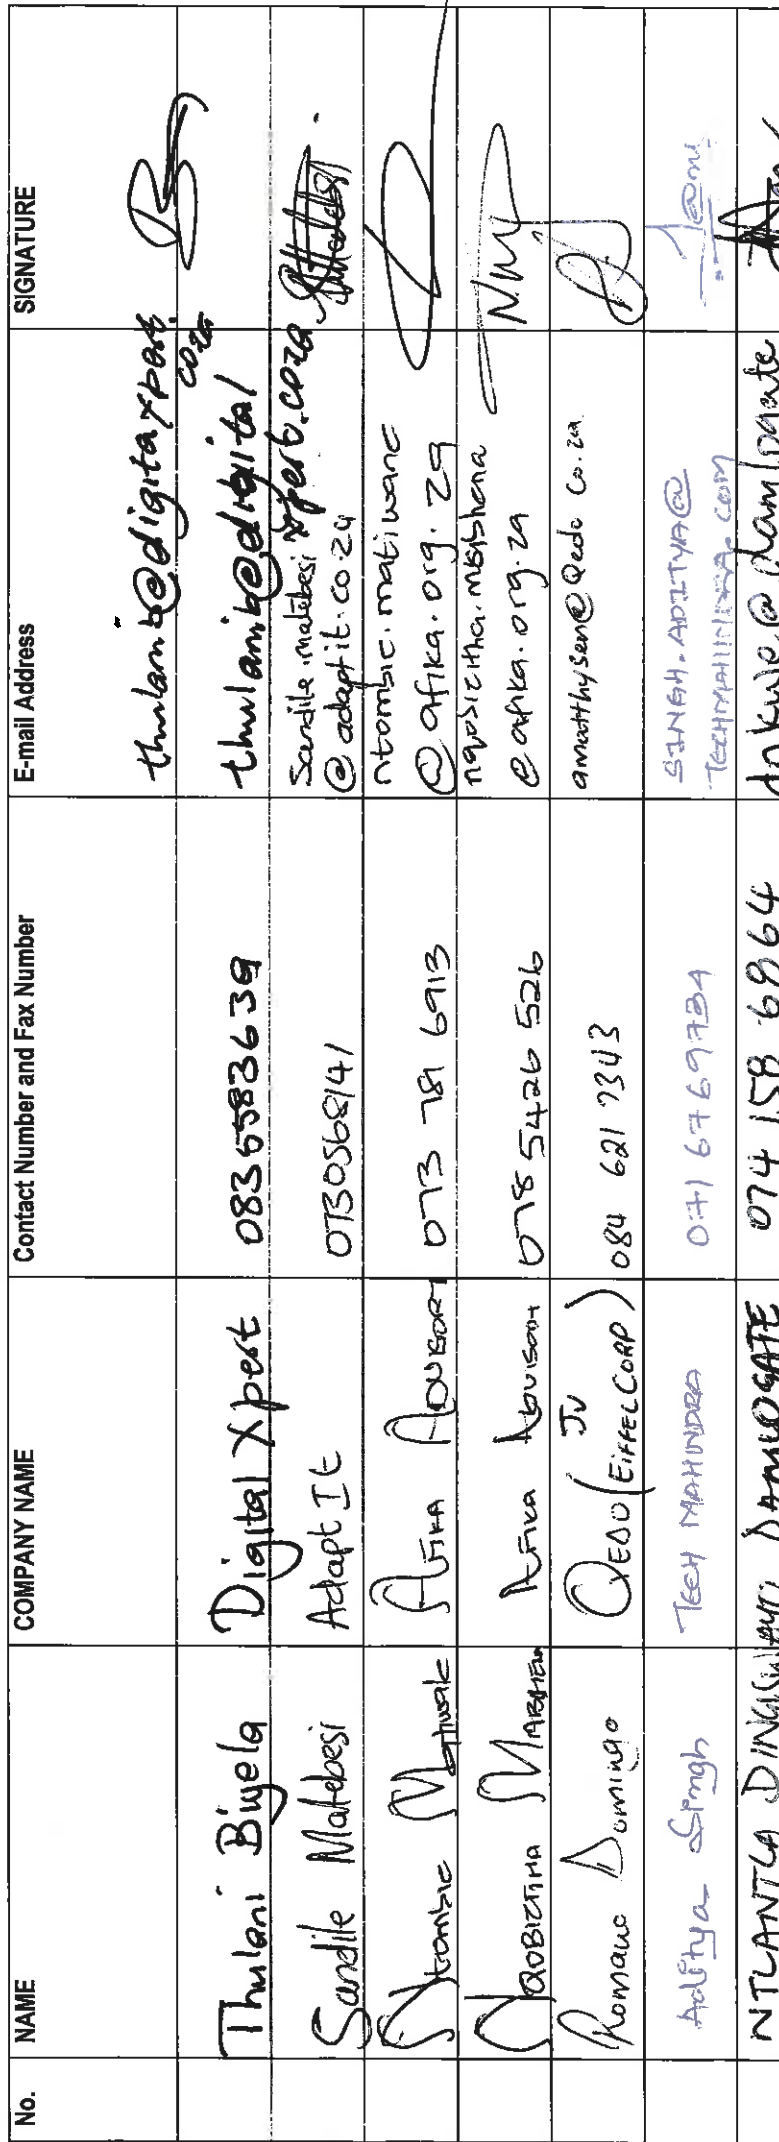 No. NAME COMPANY NAME Contact Number and Fax Number E-mail Address SIGNATURE
thulanib@digitaxpert.
co.za
Thulani Biyela Digital Xpert 0836583639 thulanib@digital
xpert.co.za
Sandile Matebesi Adapt It 0730568141 Sandile.matebesi
@adaptit.co.za
Ntombie AFIKA ADVISORY 073 781 6913 ntombie.matiwane
@afika.org.za
NQOBIZITHA AFIKA ADVISORY 078 5426 526
@afika.org.za
Romano Domingo QEDO (EIFFELCORP) JV 084 621 7343 amatthysen@Qedo.co.za
Aditya Singh TECH MAHINDRA 071 6769734 SINGH.ADITYA@
TECHMAHINDRA.COM
NTLANTLA DAMLOGATE 074 158 6964